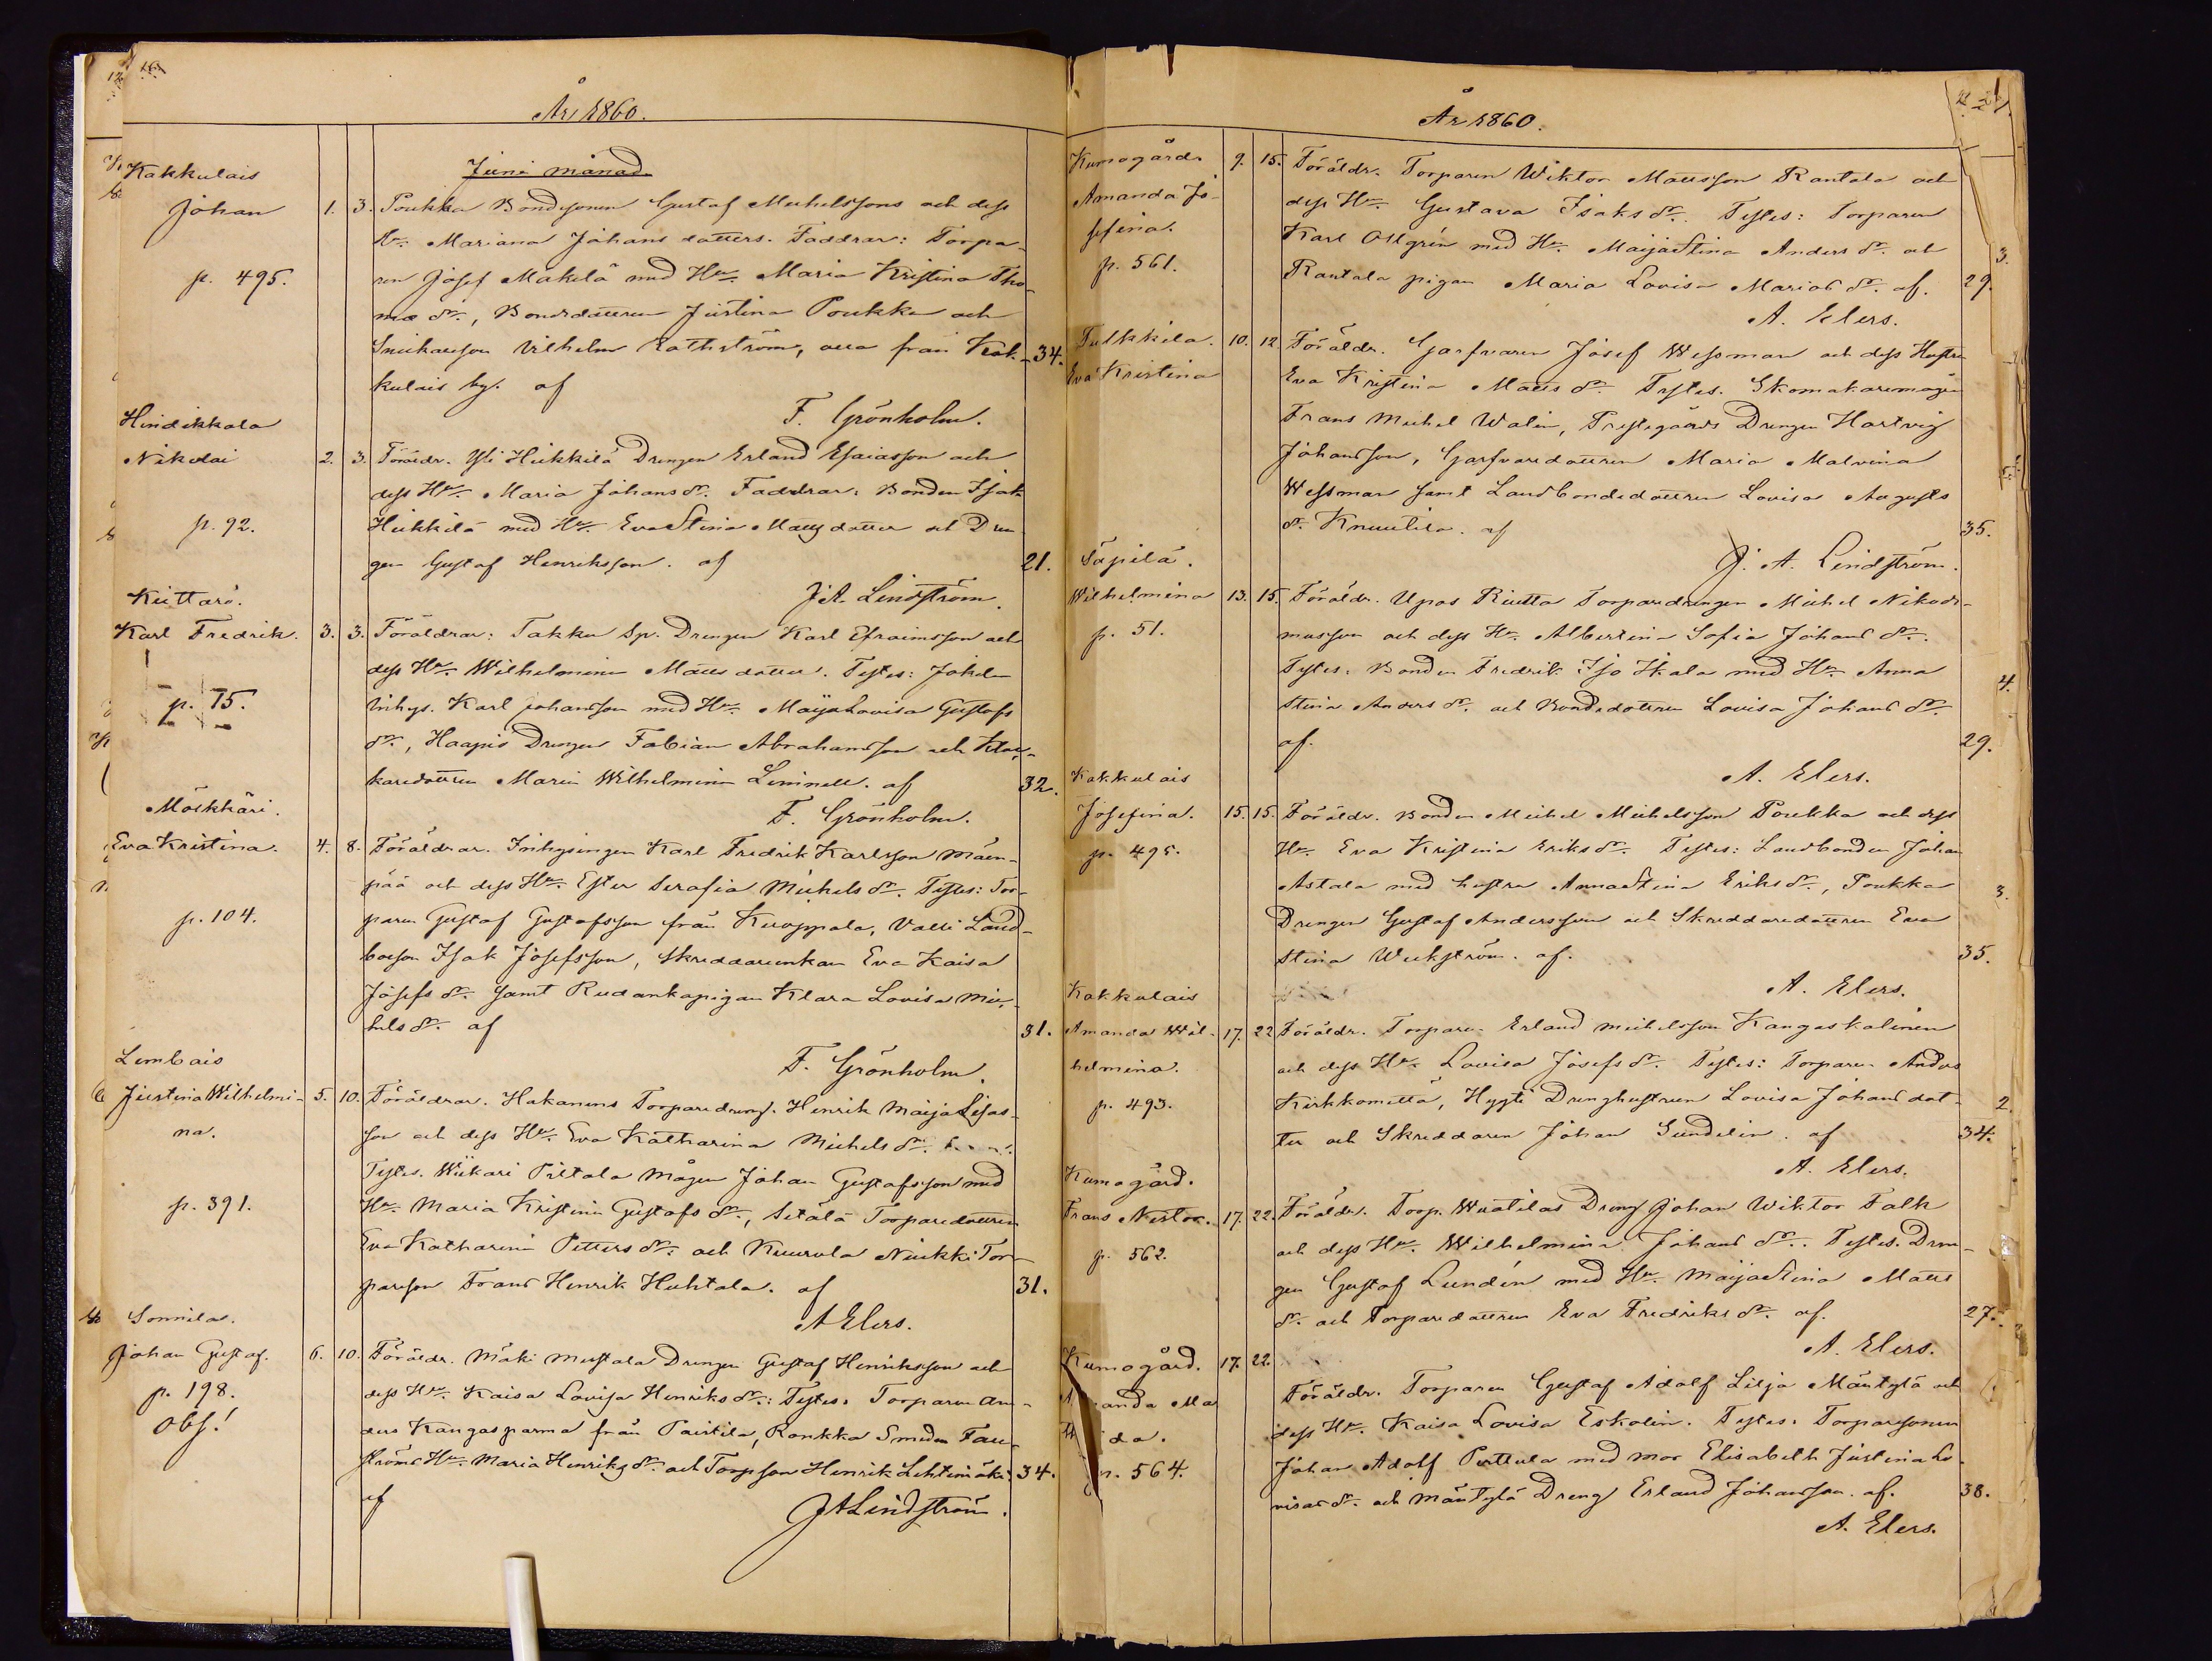 År 1860.
Juni månad.
Kakkulais
Johan 1. 3. Poukka Bondesonen Gustaf Michelssons och dess
Hu: Mariana Johans dotters. Faddrar: Torpa-
p. 495.
ren Josef Mäkelä med Hu. Maria Kristina Tho-
mæ dr., Bondedottren Justina Poukka och
Snickaren Vilhelm Rothström, alla från Kak- 34.
kulais by. af
F. Grönholm.
Hindikkala
Nikolai 2. 3. Föräldr. Yli Heikkilä Drengen Erland Esaiasson och
dess Hu. Maria Johans dr. Faddrar: Bonden Isak
p. 92.
Heikkilä med Hu. Eva Stina Matts dotter och Dren
gen Gustaf Henriksson. af 21.
J. A. Lindström.
Kiettarö.
Karl Fredrik. 3. 3. Föräldrar: Takku Sp. Drengen Karl Efraimsson och
dess Hu. Wilhelmina Matts dotter. Testes: Jokela
p. 75.
Inhys. Karl Johansson med Hu. Maija Lovisa Gustafs
dr., Haapio Drengen Fabian Abrahamsson och Kloc-
karedottren Maria Wilhelmina Leninell. af 32.
F. Grönholm.
Möckhäri.
Eva Kristina. 4. 8. Föräldrar. Inhysingen Karl Fredrik Karlsson Mäen-
pää och dess Hu. Ester Serafia Michels dr. Testes: Tor-
p. 104.
paren Gustaf Gustafsson från Kuoppala, Valli Land-
boson Isak Josefsson, Skreddareenkan Eva Kaisa
Josefs dr. samt Rudankopigan Klara Lovisa Mic-
hels dr. af 31.
F. Grönholm.
Lembais
Justina Wilhelmi- 5. 10. Föräldrar. Hakanens Torparedreng. Henrik Maija Lisas-
na.
son och dess Hu. Eva Katharina Michels dr.
Testes. Wiikari Piltola Mågen Johan Gustafsson med
p. 391.
Hu. Maria Kristina Gustafs dr., Setälä Torparedottren
Eva Katharina Petters dr. och Kuurola Niukki Tor-
pareson Frans Henrik Huhtala. af 31.
A Elers.
Sonnila.
Johan Gustaf. 6. 10. Föräldr. Mäki Mustala Drengen Gustaf Henriksson och
p. 198.
dess Hu. Kaisa Lovisa Henriks dr.: Testes: Torparen An-
Obs!
ders Kangasparma från Pairila, Ronkka Smeden Fau-
ströms Hu. Maria Henriks dr. och Torpson Henrik Lehtimäki 34.
af
J A Lindström.
År 1860.
Kumogård. 9. 15. Föräldr. Torparen Wiktor Mattsson Rantala och
Amanda Jo-
dess Hu. Gustava Isaks dr. Testes: Torparen
sefina.
Karl Ollgrén med Hu. Maija Stina Anders dr. och
p. 561.
Rantala pigan Maria Lovisa Marias dr. af. 29.
A. Elers.
Tulkkila. 10. 12 Föräldr. Garfvaren Josef Wessman och dess Hustru
Eva Kristina
Eva Kristina Matts dr. Testes. Skomakaremågen
Frans Michel Walin, Prestegårds Drengen Hartvig
Johansson, Garfvaredottren Maria Malvina
Wessman samt Landbondedottren Lovisa Augusts
dr. Knuutila. af 35.
J. A. Lindström.
Säpilä.
Wilhelmina 13. 15. Föräldr. Upas Riutta Torparedrengen Michel Nikode-
p. 51.
musson och dess Hu. Albertina Sofia Johans dr.
Testes. Bonden Fredrik Iso Ikala med Hu. Anna
Stina Anders dr. och Bondedottren Lovisa Johans dr.
af. 29.
A. Elers.
Kakkulais
Josefina. 15. 15. Föräldr. Bonden Michel Michelsson Poukka och dess
p. 495.
Hu. Eva Kristina Eriks dr. Testes: Landbonden Johan
Astala med hustru Anna Stina Eriks dr., Poukka
Drengen Gustaf Andersson och Skreddaredottren Eva
Stina Weckström. af. 35.
A. Elers.
Kakkulais
Amanda Wil- 17. 22 Föräldr. Torparen Erland Michelsson Kangaskalinen
helmina.
och dess Hu. Lovisa Josefs dr. Testes: Torparen Anders
p. 493.
Kirkkomettä, Hygti Drenghustrun Lovisa Johans dot-
ter och Skreddaren Johan Sundelin. af 34.
A. Elers.
Kumogård.
Frans Nestor. 17. 22. Föräldr. Torp. Wuatilas Dreng Johan Wiktor Falk
p. 562.
och dess Hu. Wilhelmina Johans dr. Testes. Dren-
gen Gustaf Lundén med Hu. Maija Stina Matts
dr. och Torparedottren Eva Fredriks dr. af. 27.
A. Elers.
Kumogård. 17. 22.
Föräldr. Torparen Gustaf Adolf Lilja Mäntylä och
anda Ma
dess Hu. Kaisa Lovisa Eskolin. Testes. Torparesonen
da.
Johan Adolf Perttula med mor Elisabeth Justina Lo-
p. 564.
visas dr. och Mäntylä Dreng Erland Johansson. af. 38.
A. Elers.